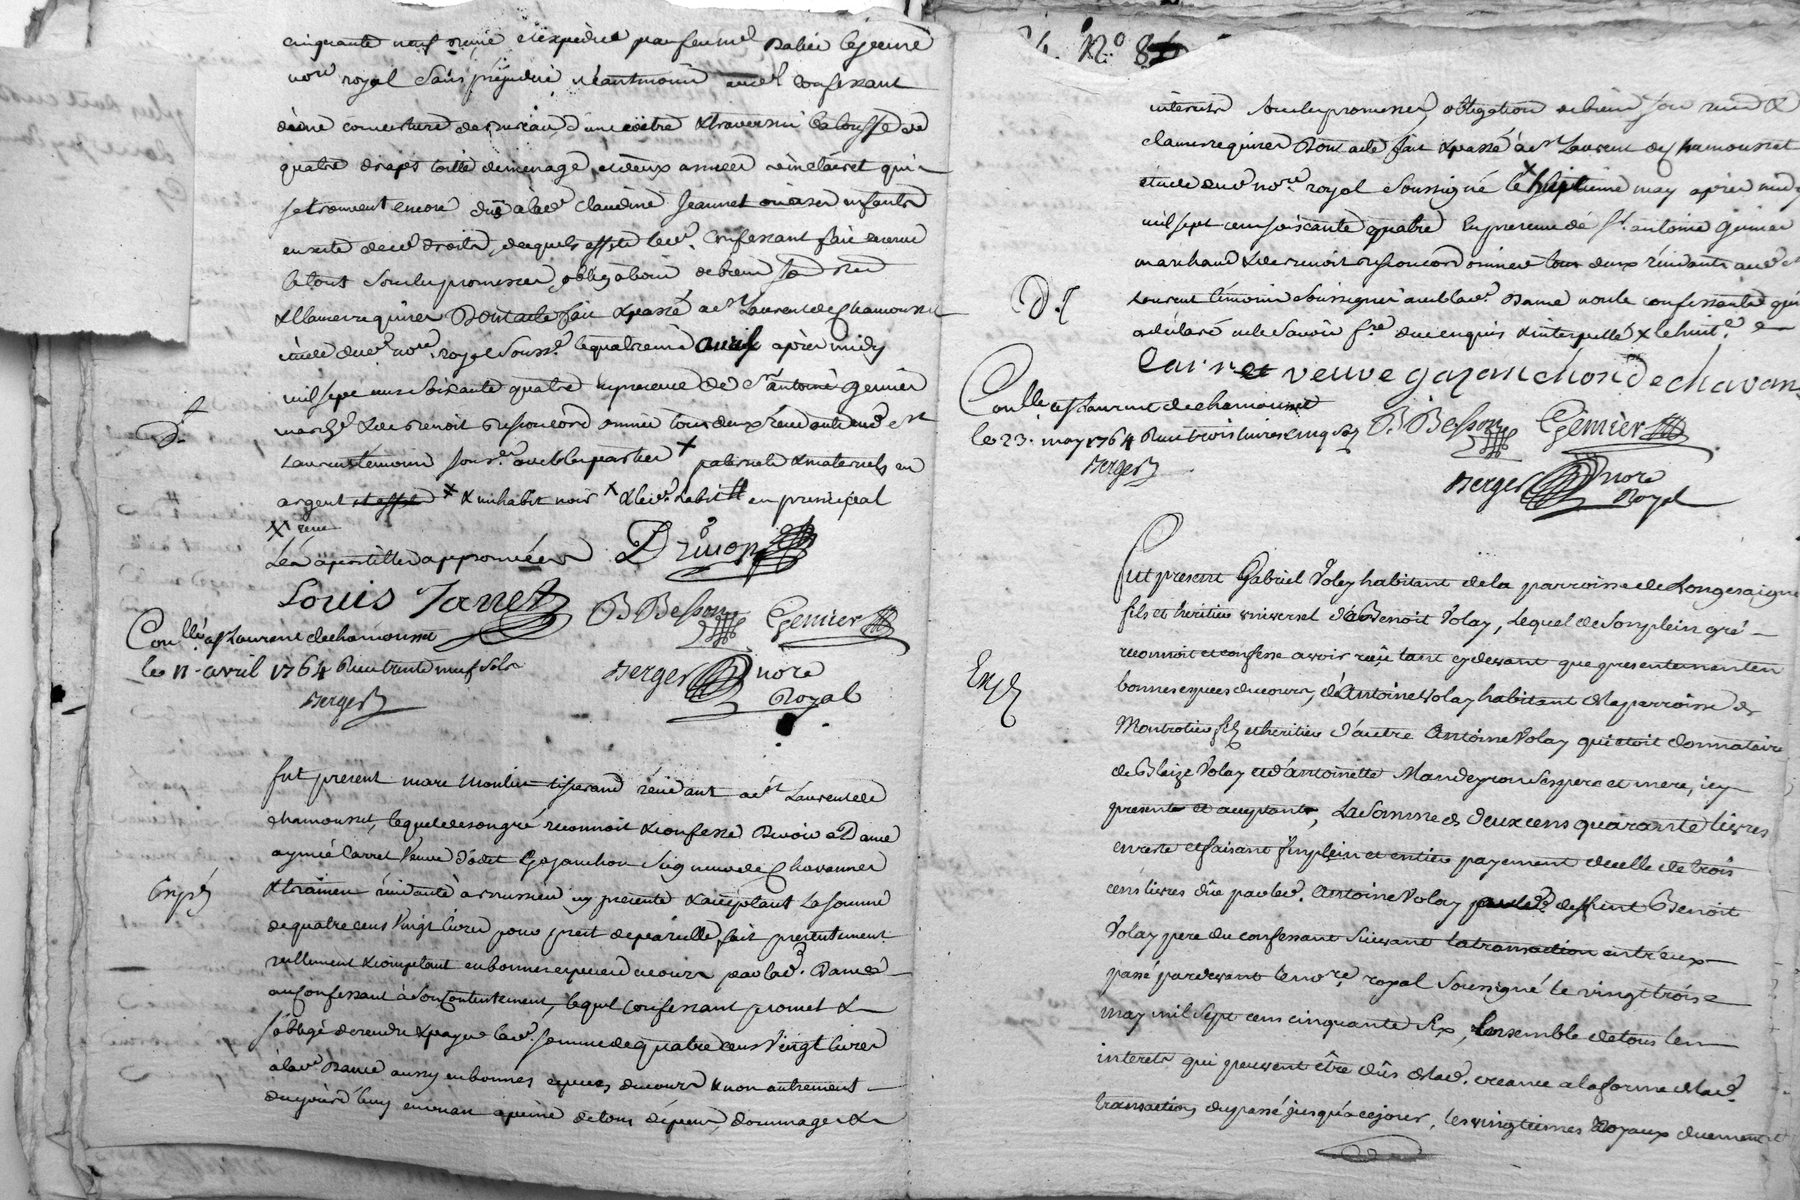 cinquante neuf reçue et expediée par feu me Dalier le jeune
nore royal sans prejudice neantmoins aud. confessant
d'une couverture de bureau, d'une
quatre draps toille de menage, et deux années clairet qui
se trouvent encore dûs à lad. Claudine Jeannet ou à ses enfants
en suite de ces droits, desquels led. confessant fait
le tout sous les promesses, obligation de biens
& clauses requises Dont acte fait & passé a st Laurent de Chamousset
étude dud. nore royal souss. le quatrieme avril après midy
mil sept cens soixante quatre en presence de sr antoine genier
march. & de Benoit Besson cordonnier tous deux residants aud. st
Laurent temoins sous. avec les parties x paternels & maternels en
argent et effets x & un habit noir x & led. en principal
XX
Les apostilles approuvées
Louis Jannet
B Besson
Genier
Con.llé a st Laurent de chamousset
le 11. avril 1764 Reçu trente neuf sols
Berger
Berger nore
Royal
D.
fut present marc Moulin tisserand residant a st Laurent de
chamousset, lequel de son gré reconnoit & confesse devoir a Dame
aymée Carret Veuve d'odet Gajanchon Seigneur de Chavannes
& residante à ici presente & acceptant La somme
de quatre cens Vingt livres pour prest de pareille, fait presentement
réellement & comptant en bonnes especes de cours par lad. Dame
au confessant à son contentement, lequel confessant promet &
s'oblige de rendre & payer lad. somme de quatre cens Vingt livres
à lad. Dame aussy en bonnes especes du cours & non autrement
du jourd'huy en un an a peine de tous dépens, dommages &
Exp
No 84
interets sous les promesses, obligation de biens &
clauses requises Dont acte fait & passé à st Laurent de Chamousset
étude dud. nore royal soussigné le x huitieme may après midy
mil sept cens soixante quatre En presence de sr. antoine genier
marchand & de Benoit Besson cordonnier tous deux residants aud. st
Laurent témoins soussignés avec lad. Dame non le confessant qui
a déclaré ne le savoir fre de ce enquis & interpellé x le huite
D.
Carret veuve gajanchon De chavan
Con.llé a st Laurent de chamousset
le 23. may 1764 Reçu trois livres cinq sols
Berger
B Besson
Genier
Berger nore
Royal
Fut present Gabriel Volay habitant de la parroisse de Longesaigne
fils et heritier universel de Benoit Volay, Lequel de son plein gré
reconnoit et confesse avoir reçû tant cy devant que presentement en
bonnes especes du cours, d'Antoine Volay habitant de la parroisse de
Montrotier fils et heritier d'autre Antoine Volay qui étoit donnataire
de Blaize Volay et d'antoinette Mandeyron ses pere et mere, icy
present et acceptant, La Somme de deux cens quarante livres
en reste et faisant L'inplein et entier payement de celle de trois
cens livres dûe par led. Antoine Volay aud. deffunt Benoit
Volay pere du confessant suivant la transaction entr'eux
passé pardevant le nore royal soussigné le vingt trois
may mil sept cens cinquante six, Ensemble de tous les
interets qui peuvent être dûs de lad. creance a la forme de lad.
transaction du passé jusqu'à ce jour, les vingtiemes Royaux duement
Exp